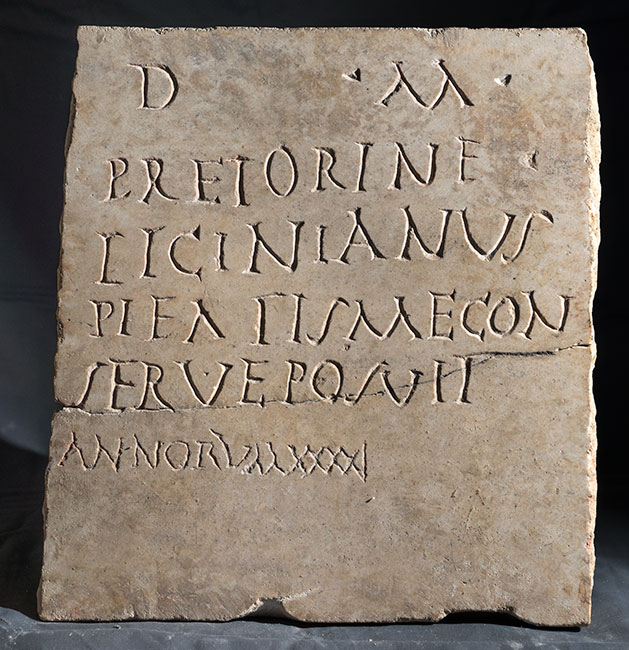 D · M ·
PRETORINE ·
LICINIANUS
PIEATISMECON
SERVEPOSUIT
ANNORUMXXXXI